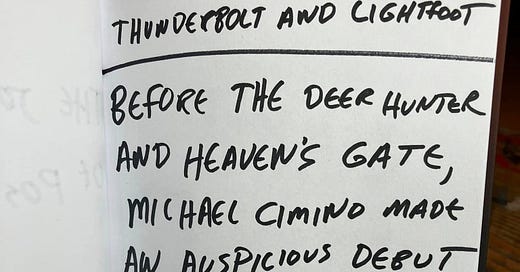 THUNDERBOLT AND LIGHTFOOT
BEFORE THE DEER HUNTER
AND HEAVEN'S GATE,
MICHAEL CIMINO MADE
AN AUSPICIOUS DEBUT